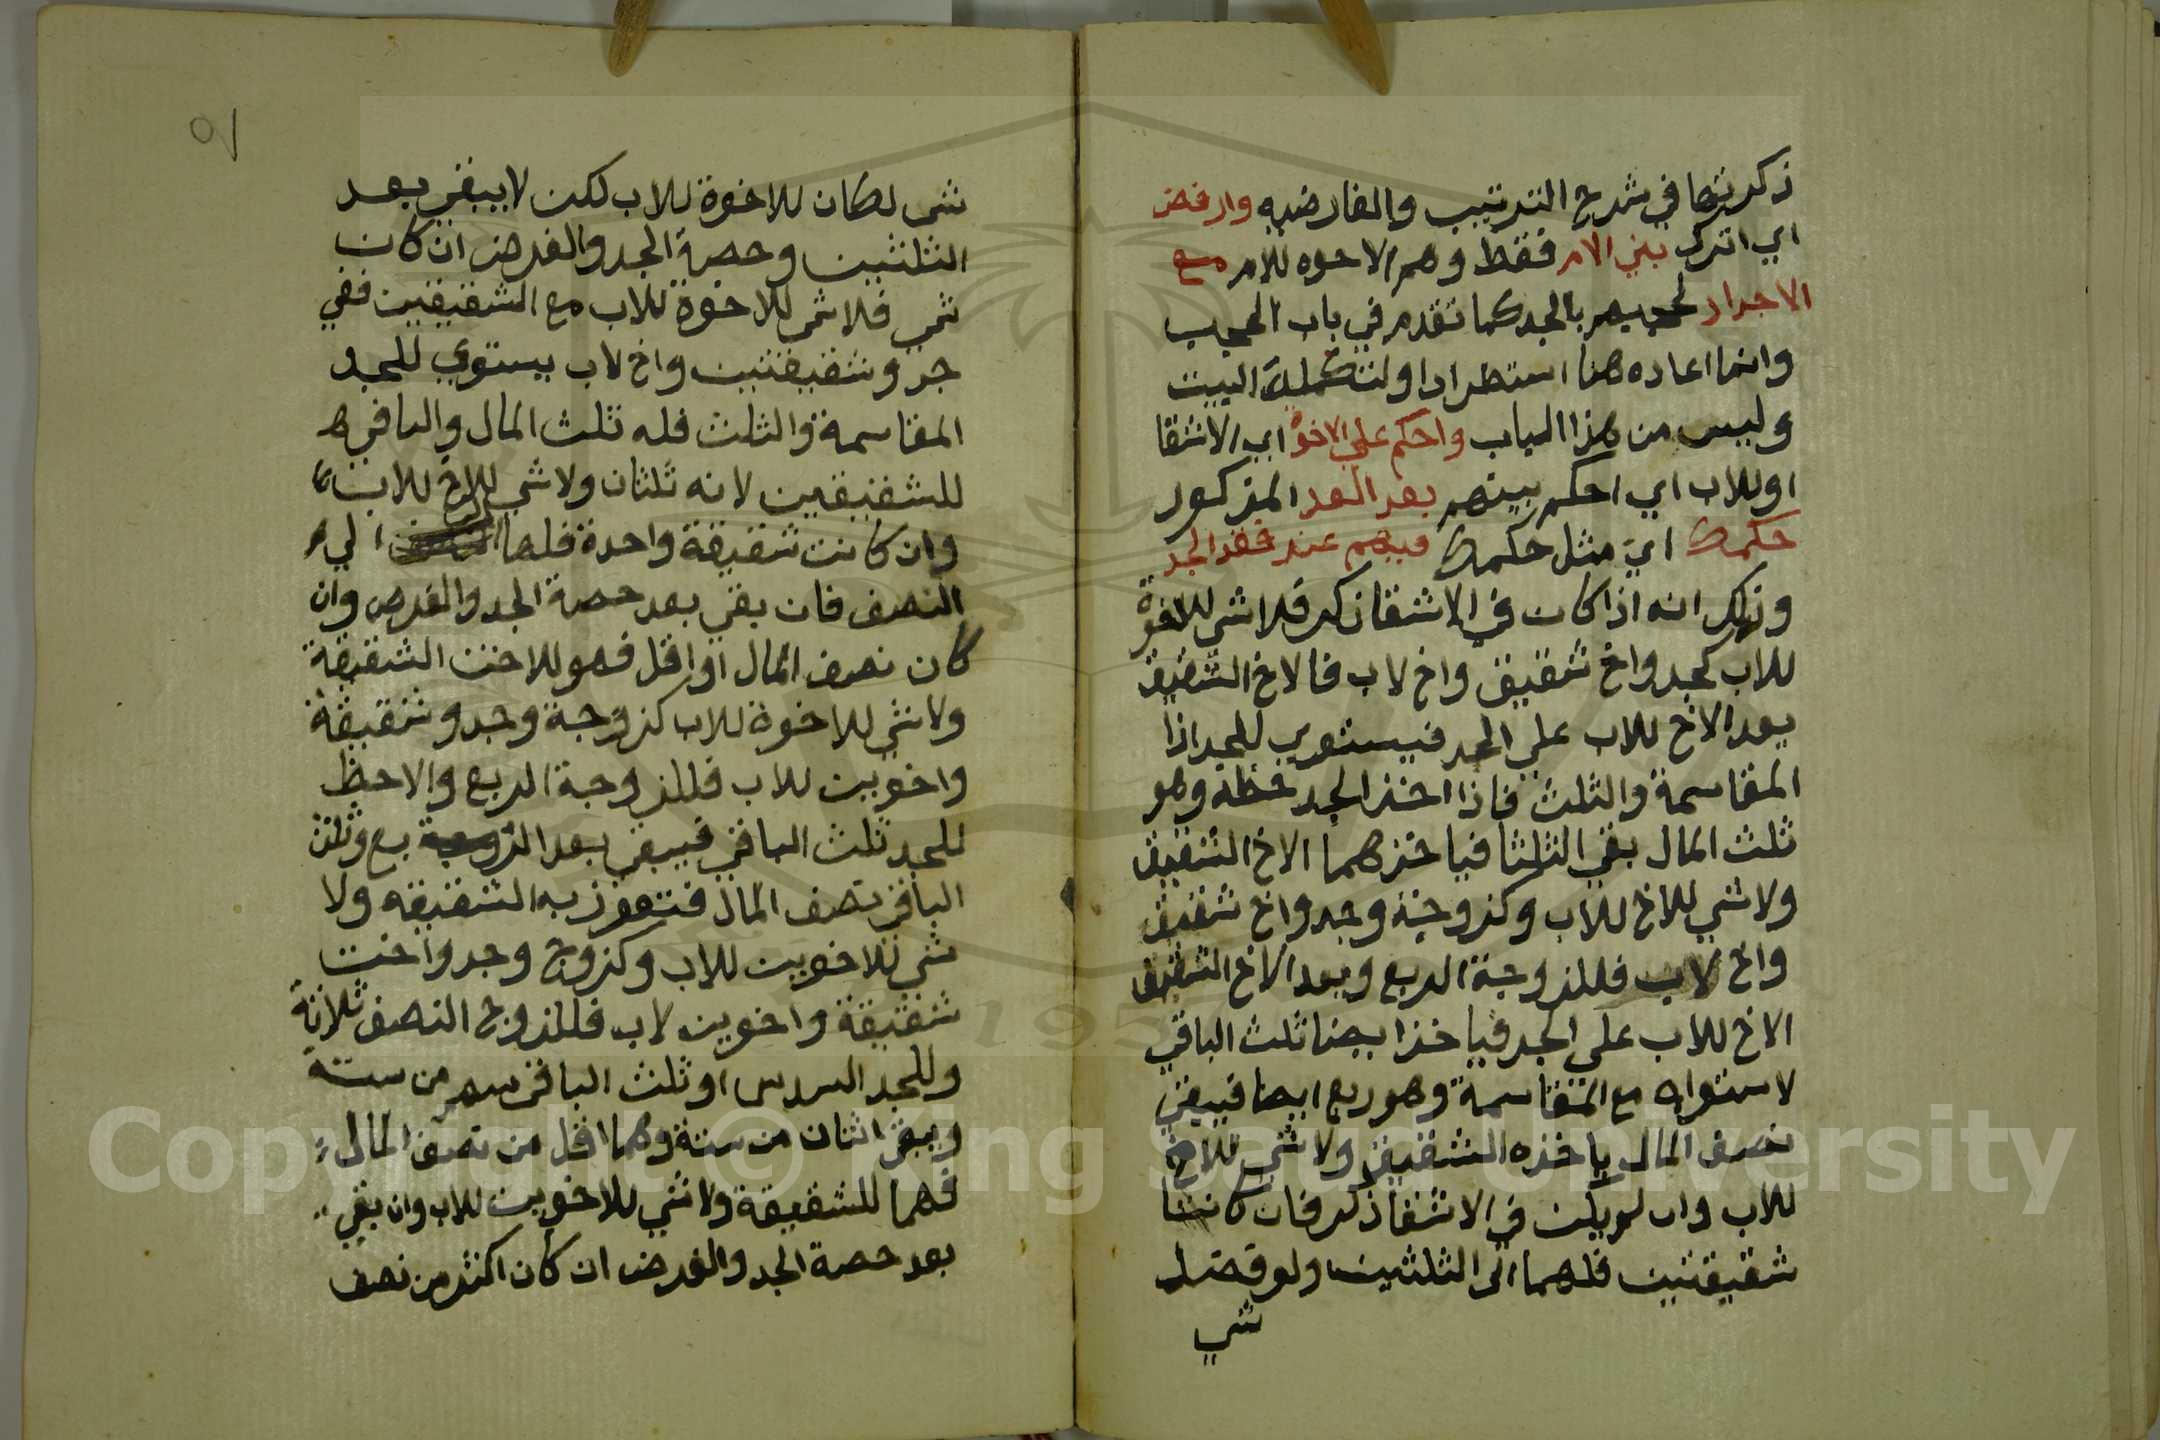 ذكرتها في شرح الترتيب والفارضيه وارفض
اي اترك بني الام فقط وهم الاخوه للام مع
الاجداد لحجبهم بالجد كما تقدم في باب الحجب
وانما اعاده هنا استطرادا ولتكملة البيت
وليس من هذا الباب واحكم علي الاخوة اي الاشقا
او للاب اي احكم بينهم بعد العد المذكور
حكمك اي مثل حكمك فيهم عند فقد الجد
وذلك انه اذا كان في الاشقا ذكر فلا شي للاخوة
للاب كجد واخ شقيق واخ لاب فالاخ الشقيق
يعد الاخ للاب علي الجد فيستوي للجد اذا
المقاسمة والثلث فاذا اخذ الجد حظه وهو
ثلث المال بقي الثلثا فياخذهما الاخ الشقيق
ولا شي للاخ للاب وكزوجة وجد واخ شقيق
واخ لاب فللزوجة الربع ويعد الاخ الشقيق
الاخ للاب علي الجد فياخذ ايضا ثلث الباقي
لاستوايه مع المقاسمة وهو ربع ايضا فيبقي
نصف المال ياخذه الشقيق ولا شي للاخ
للاب وان لم يكن في الاشقا ذكر فان كانتا
شقيقتين فلهما الي الثلثين ولو فضل
شي
٥١
شي لكان للاخوة للاب لكن لا يبقي بعد
الثلثين وحصة الجد والفرض ان كان
شي فلا شي للاخوة للاب مع الشقيقتين ففي
جد وشقيقتين واخ لاب يستوي للجد
المقاسمة والثلث فله ثلث المال والباقي
للشقيقتين لانه ثلثان ولا شي للاخ للاب
وان كانت شقيقة واحدة فلها الي
النصف فان بقي بعد حصة الجد والفرض وان
كان نصف المال او اقل فهو للاخت الشقيقة
ولا شي للاخوة للاب كزوجة وجد وشقيقة
واخوين للاب فللزوجة الربع والاحظ
للجد ثلث الباقي فيبقي بعد الربع وثلث
الباقي نصف المال فتفوز به الشقيقه ولا
شي للاخوين للاب وكزوج وجد واخت
شقيقة واخوين لاب فللزوج النصف ثلاثة
وللجد السدس او ثلث الباقي سهم من ستة
ويبقي اثنان من ستة وهما اقل من نصف المال
فهما للشقيقة ولا شي للاخوين للاب وان بقي
بعد حصة الجد والفرض ان كان اكثر من نصف
Copyright © King Saud University
1957